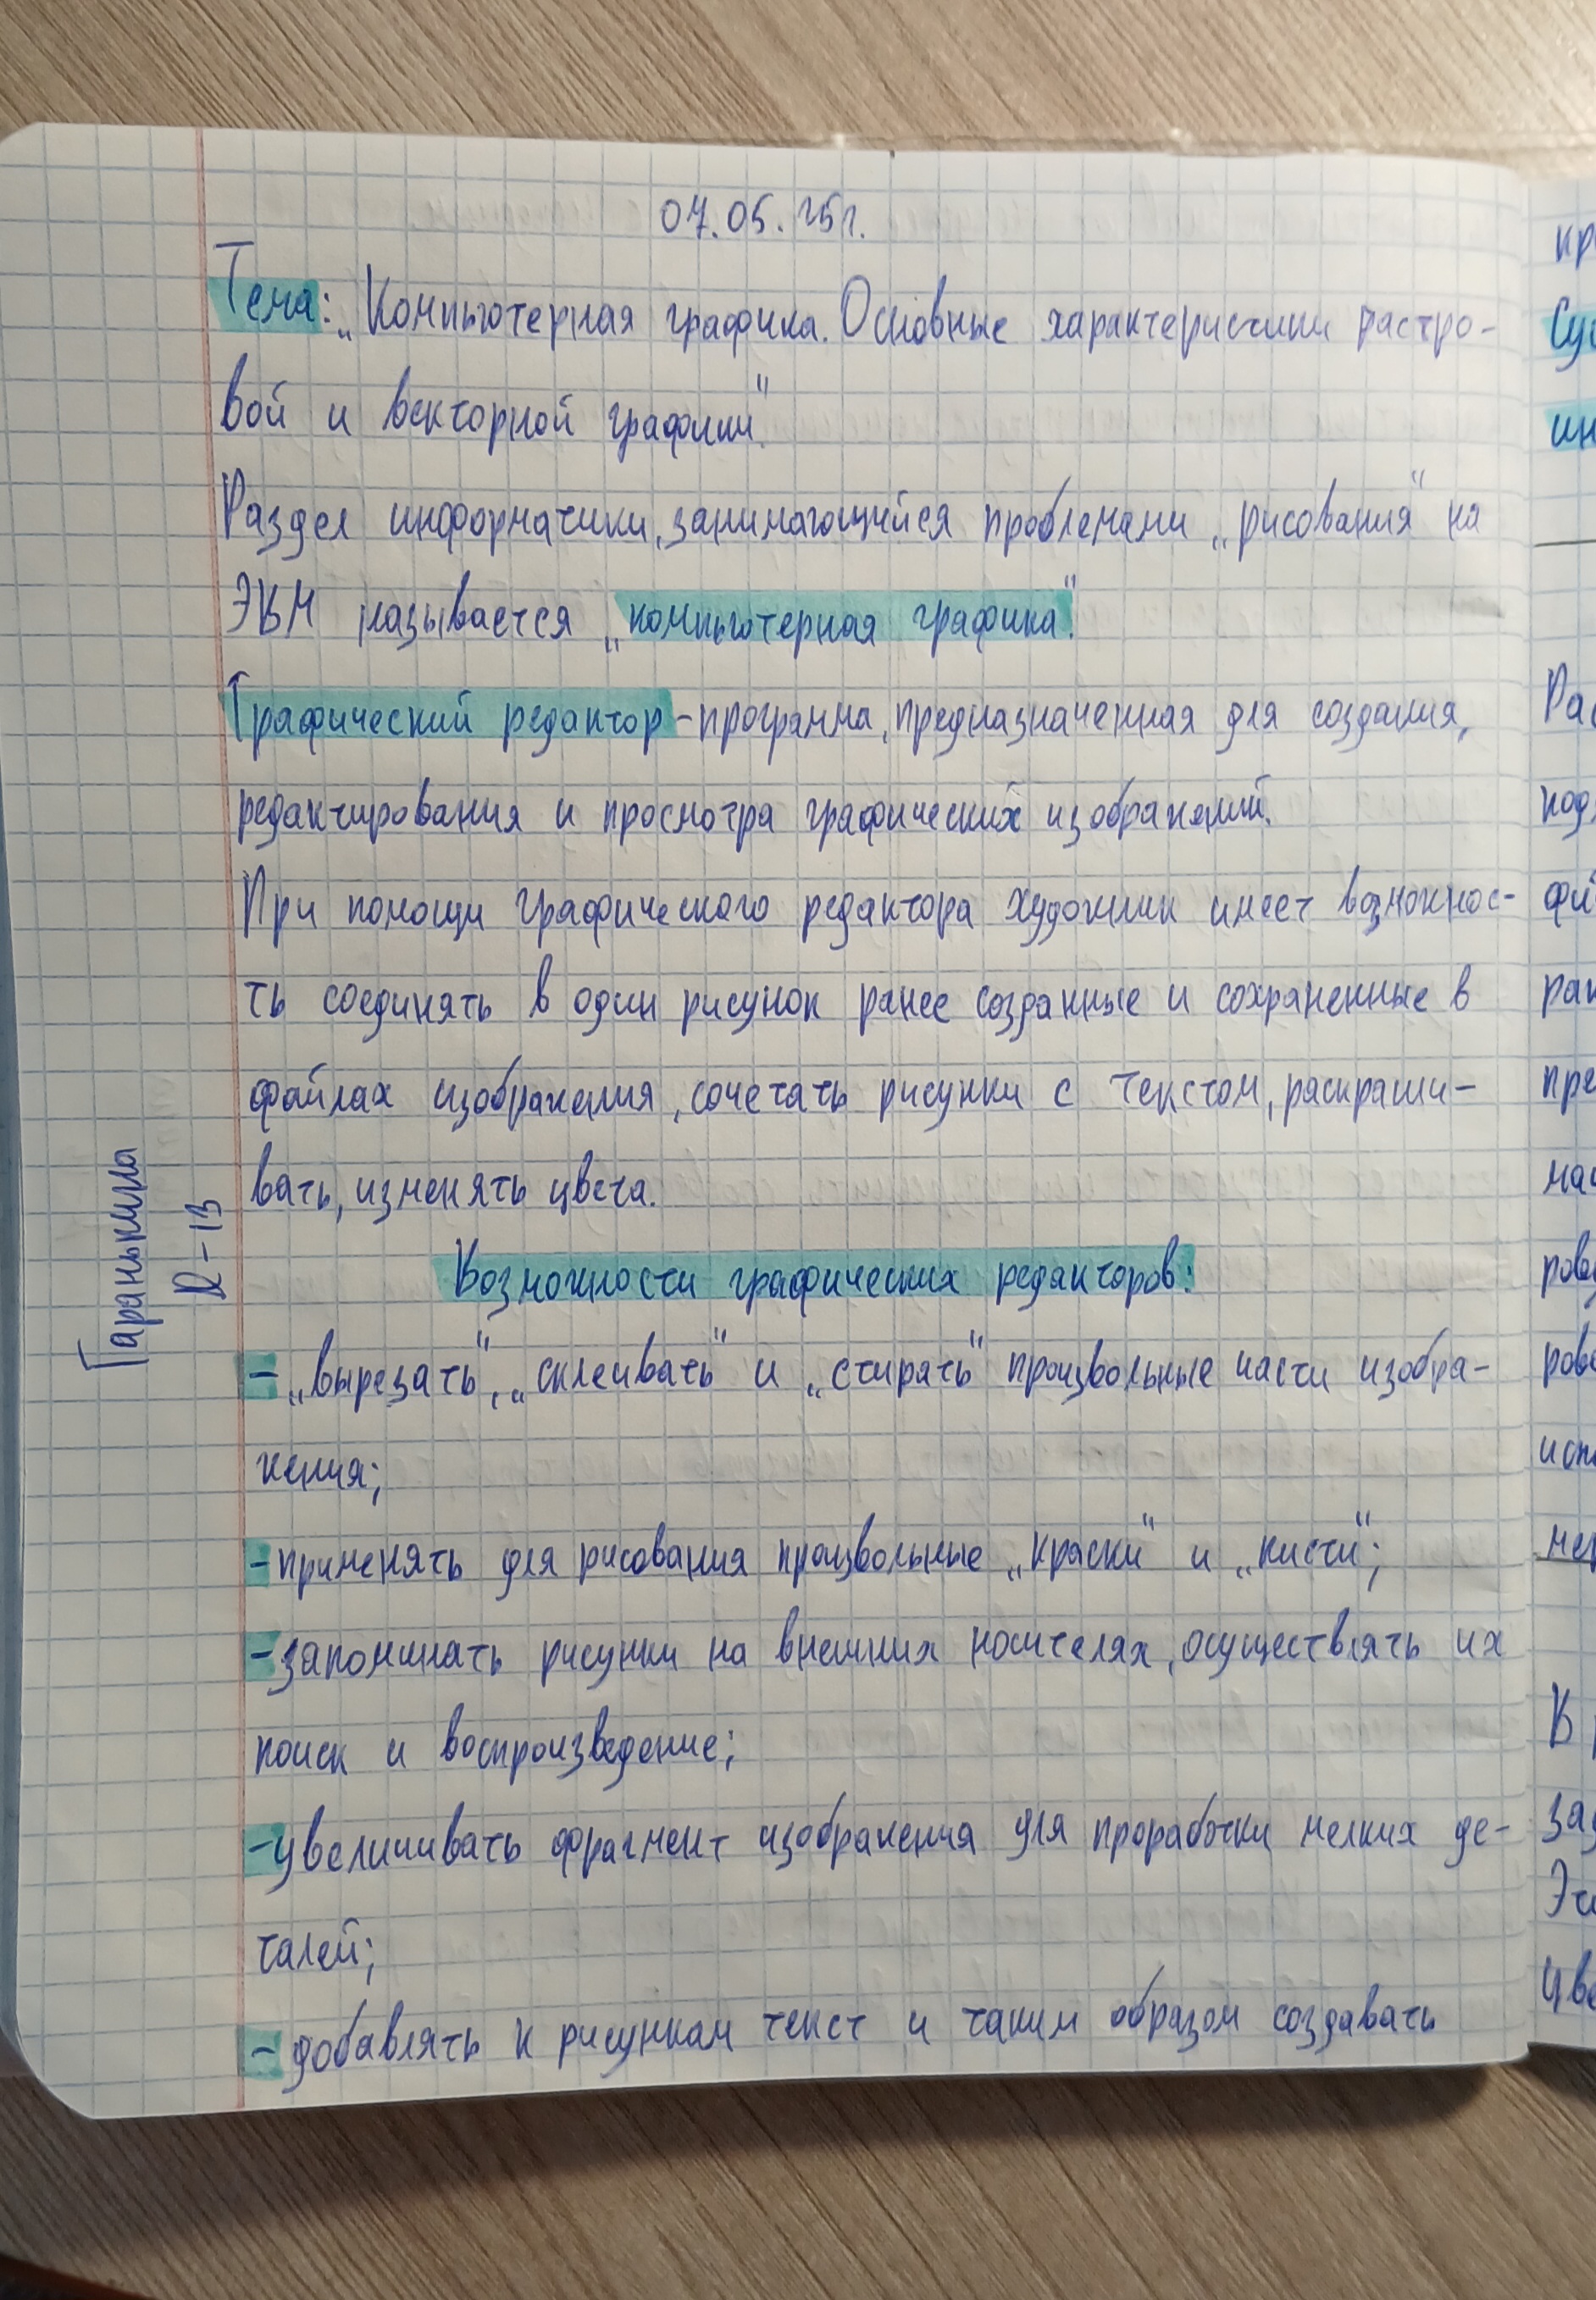 07.05.25г.
Тема: „Компьютерная графика. Основные характеристики растро-
вой и векторной графики".
Раздел информатики, занимающийся проблемами „рисования" на
ЭВМ называется „компьютерная графика".
Графический редактор - программа, предназначенная для создания,
редактирования и просмотра графических изображений.
При помощи графического редактора художник имеет возможнос-
ть соединять в один рисунок ранее созданные и сохраненные в
файлах изображения, сочетать рисунки с текстом, раскраши-
вать, изменять цвета.
Возможности графических редакторов:
- „вырезать", „склеивать" и „стирать" произвольные части изобра-
жения;
- применять для рисования произвольные „краски" и „кисти";
- запоминать рисунки на внешних носителях, осуществлять их
поиск и воспроизведение;
- увеличивать фрагмент изображения для проработки мелких де-
талей;
- добавлять к рисункам текст и таким образом создавать
Гаранькина